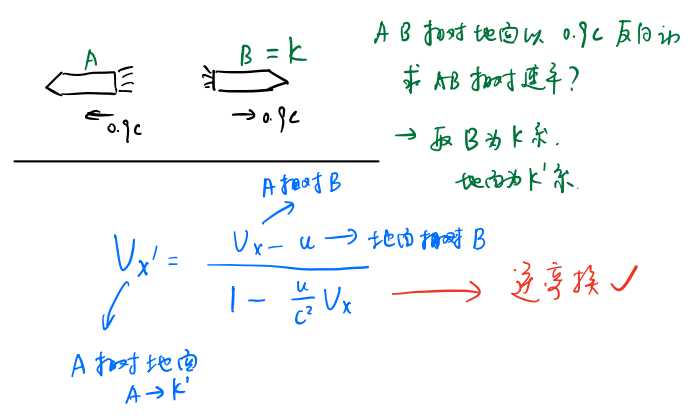 A
B = K
0.9c
0.9c
A B 相对地面以 0.9c 反向运动
求 AB 相对速率?
→ 取 B 为 K 系.
地面为 K' 系.
A 相对 B
Vx' = (Vx - u) / (1 - u/c² Vx)
→ 地面相对 B
→ 逆变换 ✓
A 相对地面
A → K'